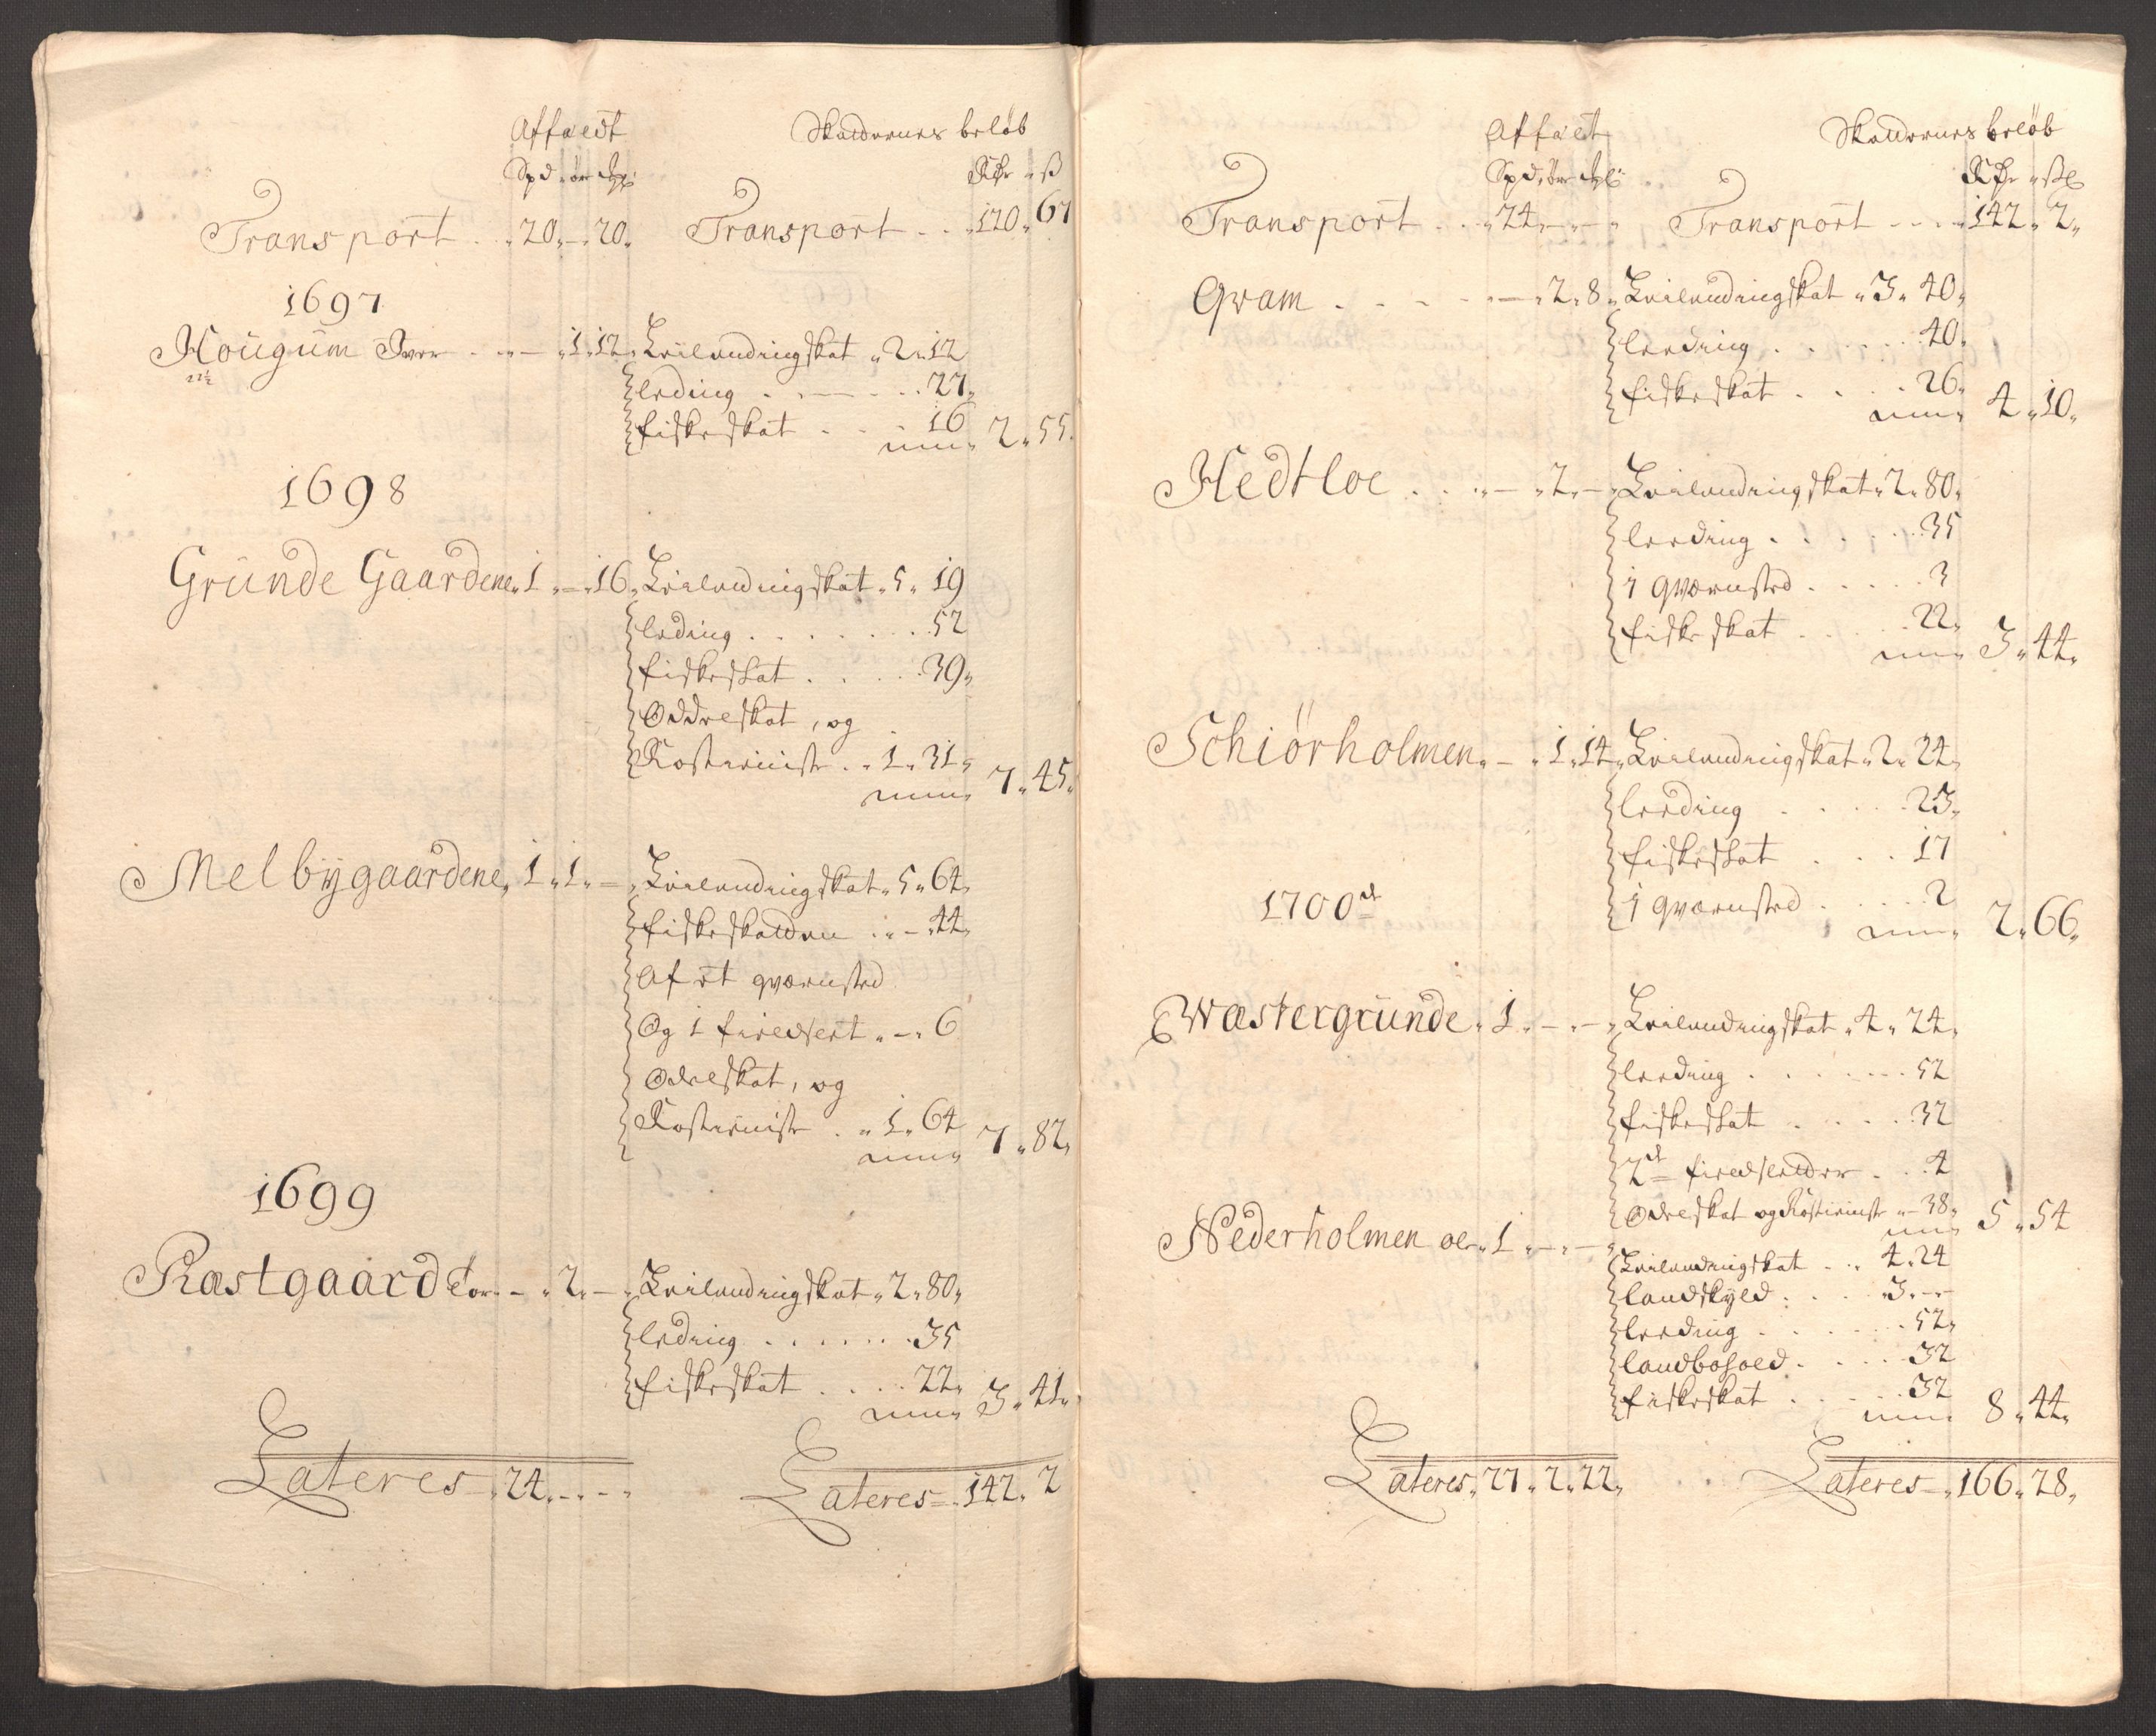 Affældt Skatternes beløb
Spd ör Rdr ß
Transport 20 „ - „ 20 „ Transport - - 120 „ 67
1697
Hougum Iver - „ 1 „ 12 „ Leilendingskat „ 2 „ 12
22½
leding . . . . . 27 „
fiskeskat . . . 16
2 „ 55
1698
Grunde Gaardene „ 1 „ - „ 16 „ Leilendingskat „ 5 „ 19
leding . . . . . 52
fiskeskat . . . . . 39 „
Oddreskat, og
Rostieniste . „ 1 „ 31 „
7 „ 45 „
Melbÿgaardene „ 1 „ 1 „ - „ Leilendingskat „ 5 „ 64 „
fiskeskatten . . - „ 44 „
Af et qværnsted
Og 1 - 6
Odreskat, og
Rostieniste . „ 1 „ 64
7 „ 82 „
1699
Rastgaard - „ 2 „ - „ Leilendingskat „ 2 „ 80 „
leding . . . . . . 35
fiskeskat . . . . 22 „
3 „ 41 „
Lateres „ 24 „ - „ - „ Lateres „ 142 „ 2
Affældt Skatternes beløb
Spd ör Rdr ß
Transport . . „ 24 „ - „ - „ Transport - - - „ 142 „ 2 „
Qvam . - - - - „ 2 „ 8 „ Leilendingskat „ 3 „ 40 „
leeding . . . . . . 40 „
fiskeskat . . . . 26 „
4 „ 10 „
Hedtloe . . . „ - „ 2 „ - „ Leilendingskat „ 2 „ 80 „
leeding . . . . . . 35
1 qværnsted . . . . . 3
fiskeskat . . . . 22 „
3 „ 44 „
Schiörholmen „ - „ 1 „ 14 „ Leilendingskat „ 2 „ 24 „
leeding . . . . . 23 „
fiskeskat . . . . 17
1 qværnsted . . . . 2
2 „ 66 „
1700
Wæstergrunde „ 1 „ - „ - „ Leilendingskat „ 4 „ 24 „
leeding . . . . . . 52
fiskeskat . . . . . 32
2 . . 4
Odreskat og Rostieniste „ - 38 „
5 „ 54
Nederholmen „ 1 „ - „ - „
Leilendingskat . . 4 „ 24
landskyld . . . . „ 3 „ - „
leeding . . . . . . 52 „
landbohold . . . . 32
fiskeskat . . . . . 32
8 „ 44 „
Lateres „ 27 „ 2 „ 22 „ Lateres „ 166 „ 28 „